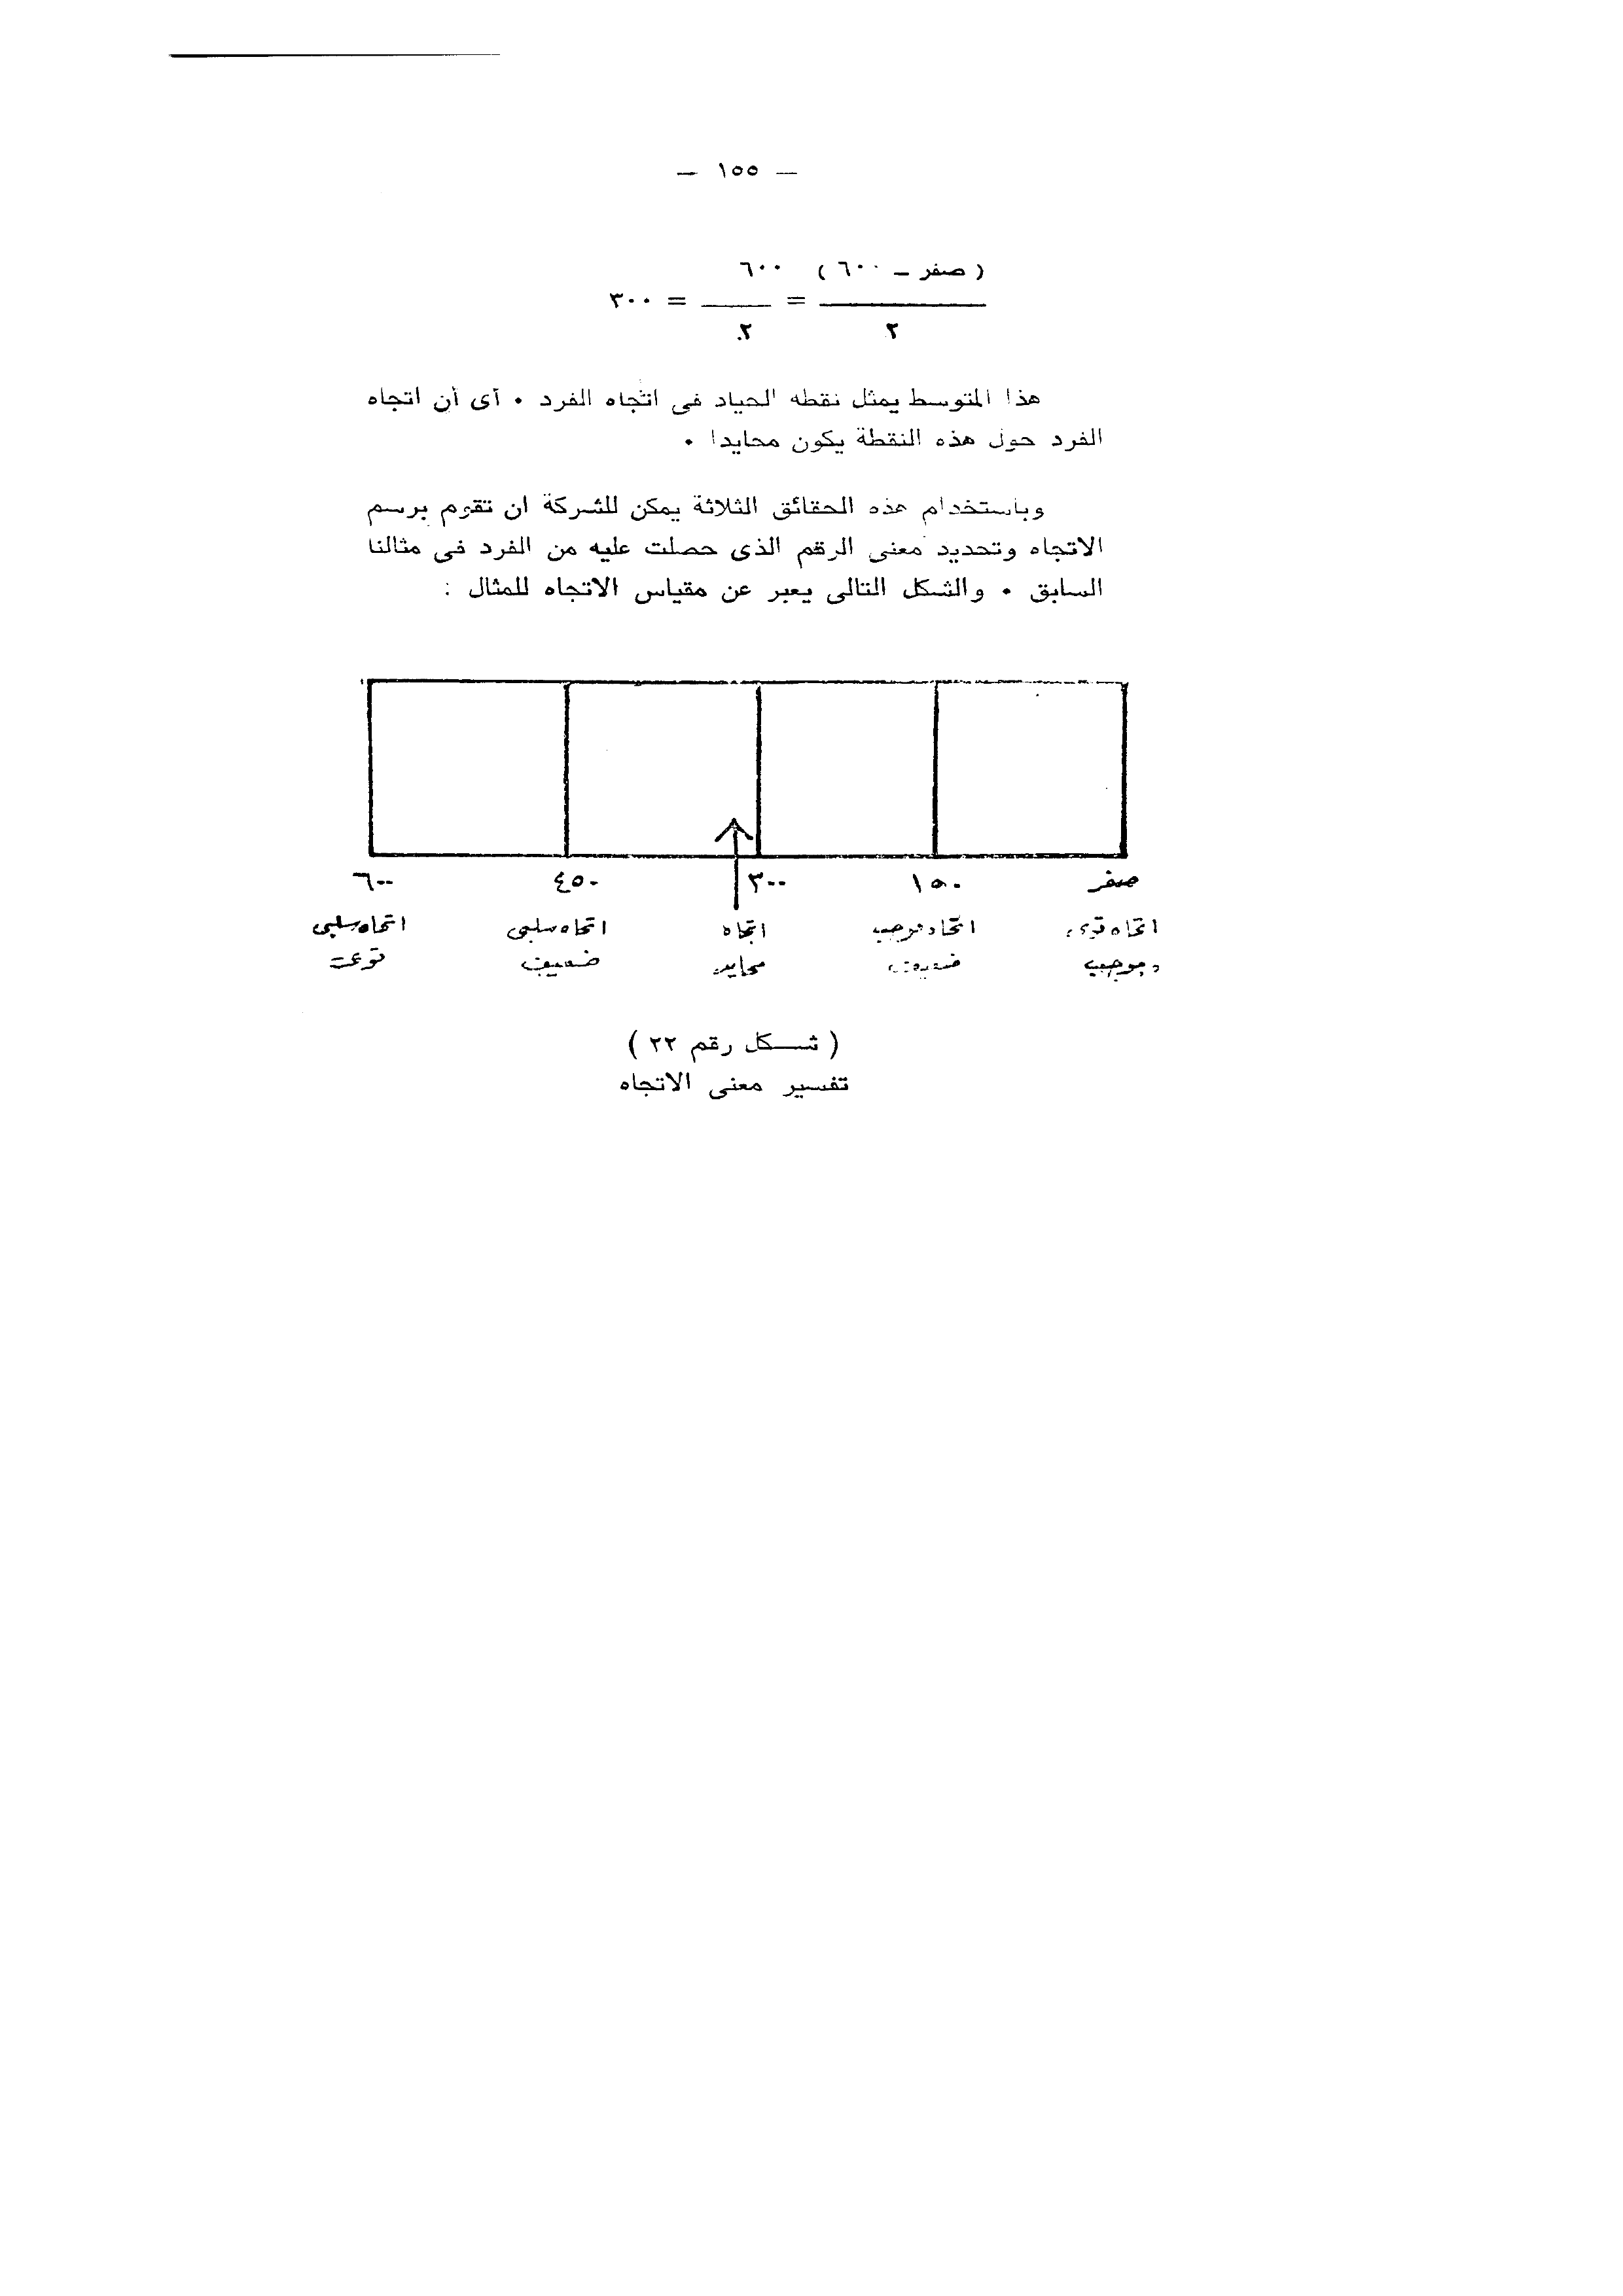 — ١٥٥ —
( صفر — ٦٠٠ ) ٦٠٠
ــــــــ = ــــــــ = ٣٠٠
٢ ٢
هذا المتوسط يمثل نقطه الحياد فى اتجاه الفرد ٠ أى أن اتجاه
الفرد حول هذه النقطة يكون محايدا ٠
وباستخدام هذه الحقائق الثلاثة يمكن للشركة ان تقوم برسم
الاتجاه وتحديد معنى الرقم الذى حصلت عليه من الفرد فى مثالنا
السابق ٠ والشكل التالى يعبر عن مقياس الاتجاه للمثال :
صفر ١٥٠ ٣٠٠ ٤٥٠ ٦٠٠
اتجاه قوى اتجاه موجب اتجاه اتجاه سلبى اتجاه سلبى
وموجب ضعيف محايد ضعيف قوى
( شكل رقم ٢٢ )
تفسير معنى الاتجاه